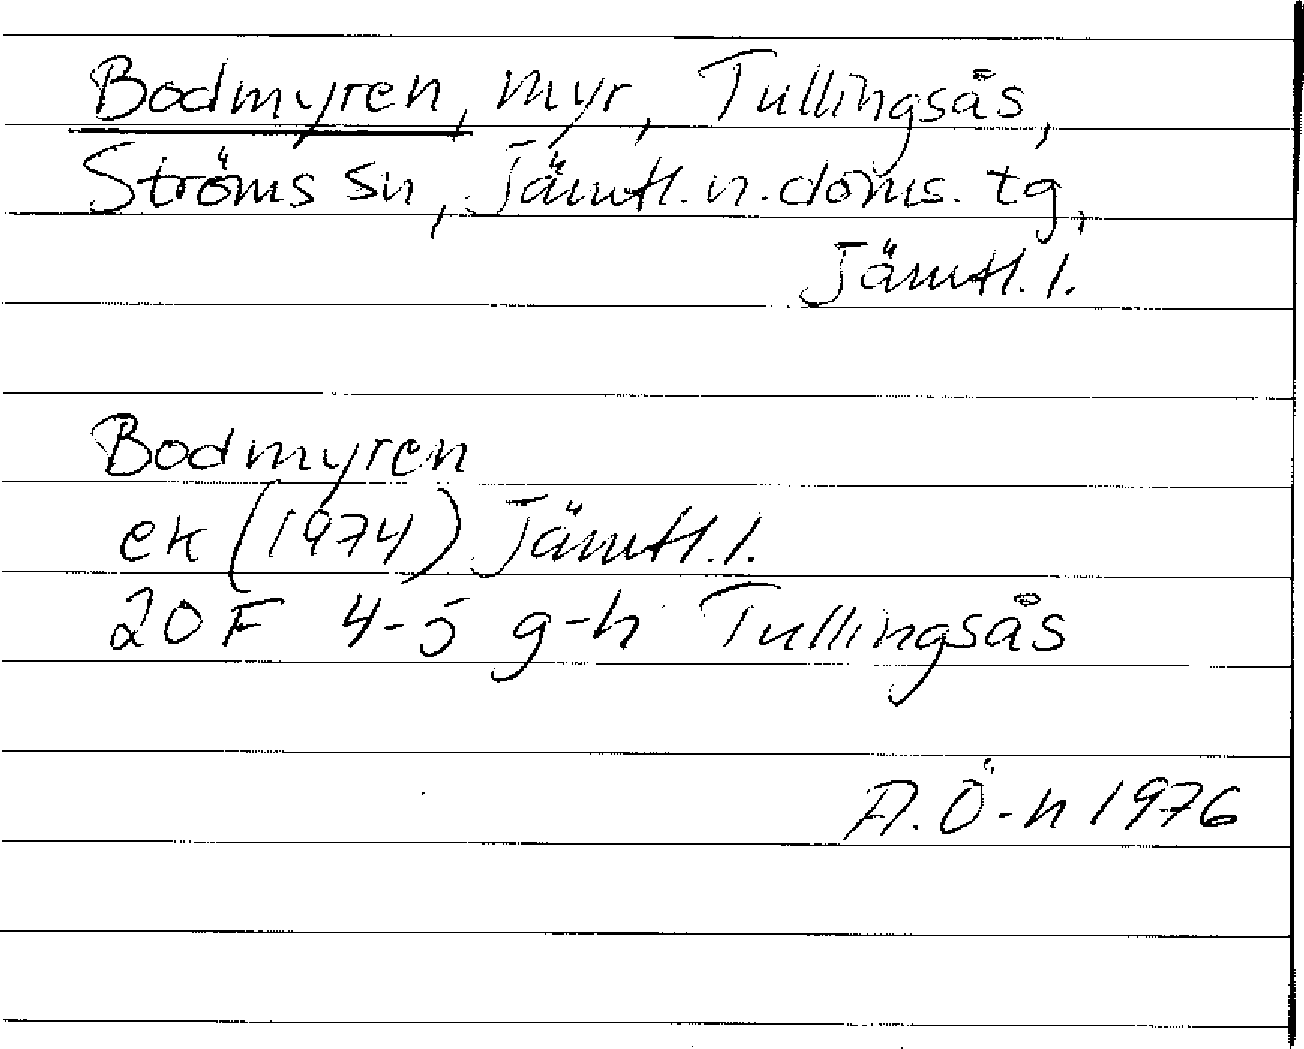 Bodmyren, myr, Tullingsås,
Ströms sn, Jämtl. n. doms. tg,
Jämtl. l.
Bodmyren
ek (1974) Jämtl. l.
20 F 4-5 g-h Tullingsås
A. Ö-n 1976